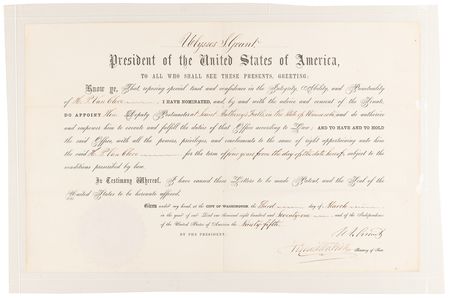 Ulysses S. Grant
President of the United States of America,
TO ALL WHO SHALL SEE THESE PRESENTS, GREETING:
Know ye, That, reposing special trust and confidence in the Integrity, Ability, and Punctuality
of H. P. Van Cleve, I HAVE NOMINATED, and, by and with the advice and consent of the Senate,
DO APPOINT Him Deputy Postmaster at Saint Anthony's Falls, in the State of Minnesota, and do authorize
and empower him to execute and fulfill the duties of that Office according to Law; AND TO HAVE AND TO HOLD
the said Office, with all the powers, privileges, and emoluments to the same of right appertaining unto him
the said H. P. Van Cleve for the term of four years from the day of the date hereof, subject to the
conditions prescribed by law.
In Testimony Whereof, I have caused these Letters to be made Patent, and the Seal of the
United States to be hereunto affixed.
GIVEN under my hand, at the CITY OF WASHINGTON, the Third day of March
in the year of our Lord one thousand eight hundred and seventy one and of the Independence
of the United States of America the Ninety fifth.
U. S. Grant
BY THE PRESIDENT:
Secretary of State